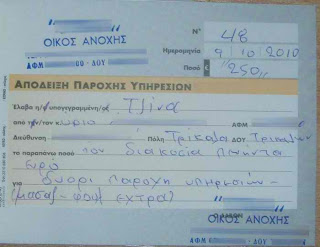 ΟΙΚΟΣ ΑΝΟΧΗΣ
ΑΦΜ 00 - ΔΟΥ
Ν° 48
Ημερομηνία 9/10/2010
Ποσό € "250"
ΑΠΟΔΕΙΞΗ ΠΑΡΟΧΗΣ ΥΠΗΡΕΣΙΩΝ
Έλαβα η/ο υπογεγραμμένη/ος Τζίνα
από τον κύριο ΑΦΜ
Διεύθυνση Πόλη Τρίκαλα ΔΟΥ Τρικάλων
το παραπάνω ποσό των διακόσια πενήντα
ευρώ
για δίωρη παροχή υπηρεσιών -
(μασάζ - εχτρα)
ΟΙΚΟΣ ΑΝΟΧΗΣ